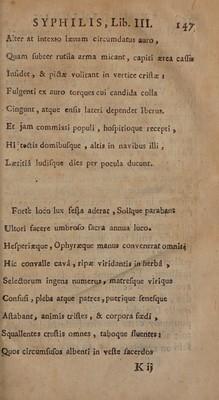 SYPHILIS, Lib. III. 147
Alter at intexto lænam circumdatus auro,
Quam subter rutila arma micant, capiti ærea cassis
Insidet, & pictæ volitant in vertice cristæ:
Fulgenti ex auro torques cui candida colla
Cingunt, atque ensis lateri dependet Iberus.
Et jam commissi populi, hospitioque recepti,
Hi tectis domibusque, altis in navibus illi,
Lætitiâ ludisque dies per pocula ducunt.
Forte loco lux festa aderat, Solique parabant
Ultori facere umbroso sacra annua luco.
Hesperiæque, Ophyræque manus convenerat omnis;
Hic convalle cavâ, ripæ viridantis in herbâ,
Selectorum ingens numerus, matresque virique
Confusi, plebs atque patres, puerique senesque
Astabant, animis tristes, & corpora fœdi,
Squallentes crustis omnes, taboque fluentes:
Quos circumfusos albenti in veste sacerdos
K ij